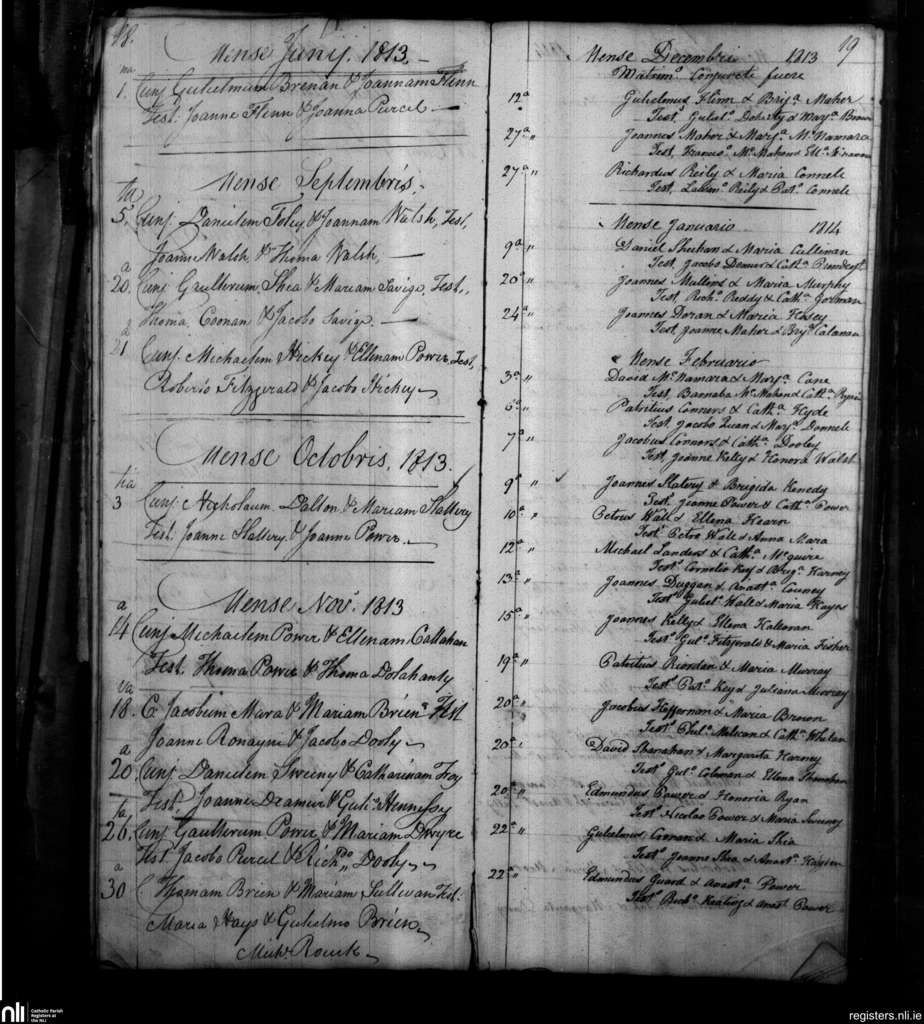 18.
Mense Junij. 1813.
1.ma Conj. Gulielmum Brenan & Joannam Flinn
Test. Joanne Flinn & Joanna Purcel
Mense Septembris.
5.ta Conj. Danielem Foley & Joannam Walsh, Test.,
Joanne Walsh, & Thoma Walsh,
20.a Conj. Gaulterum Shea & Mariam Savige, Test.,
Thoma, Coonan & Jacobo Savige.
21a Conj. Michaelem Hickey & Ellenam Power Test,
Roberto Fitzgerald & Jacobo Hickey
Mense Octobris, 1813.
3tia Conj. Nicholaum Dalton & Mariam Slattery
Test. Joanne Slattery & Joanne Power.
Mense Nov.r 1813
14a Conj Michaelem Power & Ellenam Callahan
Test. Thoma Power & Thoma Dolahanty
18.va C. Jacobum Mara & Mariam Brien Test
Joanne Ronayne & Jacobo Dooly
20.a Conj. Danielem Sweeny & Catharinam Froy
Test. Joanne & Gul. Hennessy
26.ta Conj Gaulterum Power & Mariam Dwyre
Test. Jacobo Purcel & Rich.do Dooly
30a Thomam Brien & Mariam Sullivan Test.
Maria Hays & Gulielmo Brien
Mich. Rourk
19
Mense Decembris 1813
Matrim.o Conjuncti fuere
12a Gulielmus Flinn & Brig.a Maher
Test.s Guliel.o Doherty & Mary.a Brown
27a " Joannes Maher & Mary.a McNamara
Test. Francis.o McMahon & Ell.a
27a " Richardus Reily & Maria Connele
Test. Reily & Pat.o Connele
Mense Januario 1814
9a " Daniel Sheehan & Maria Cullinan
Test. Jacobo & Cath.a
20a " Joannes Mullins & Maria Murphy
Test. Rich.o Reddy & Cath.a Gorman
24a " Joannes Doran & Maria
Test. Joanne Maher & Brig.a
Mense Februario
3a " David McNamara & Mary.a Cane
Test. Barnaba McMahon & Cath.a Ryan
6a " Patritius Conners & Cath.a Hyde
Test. Jacobo & Mary.a Donnele
7a " Jacobus Conners & Cath.a Dooley
Test. Joanne Kelly & Honora Walsh
9a " Joannes Slatery & Brigida Kenedy
Test. Joanne Power & Cath.a Power
10a " Petrus Wall & Ellena Hearn
Test.s Petro Wall & Anna Mara
12a " Michael Landers & Cath.a McGuire
Test.s Cornelio Key & Brig.a Harney
13a " Joannes Duggan & Anast.a
Test.s Guliel.o Wall & Maria
15a " Joannes Kelly & Ellena Halloran
Test.s Gul.o Fitzgerald & Maria Fisher
19a " Patritius Riordan & Maria Murray
Test.s Pat.o Key & Juliana Murray
20a " Jacobus Heffernan & Maria Brown
Test.s & Cath.a Whelan
20a " David Shanahan & Margarita Harney
Test.s Gul.o Coleman & Ellena Shanahan
20a " Edmundus Power & Honoria Ryan
Test.s Nicolao Power & Maria Sweeny
22a " Gulielmus & Maria Shea
Test.s Joanne Shea & Anast.a
22a " Edmundus Guard & Anast.a Power
Test.s Rich.o Keating & Anast. Power
nli
Catholic Parish
Registers at
the NLI
registers.nli.ie